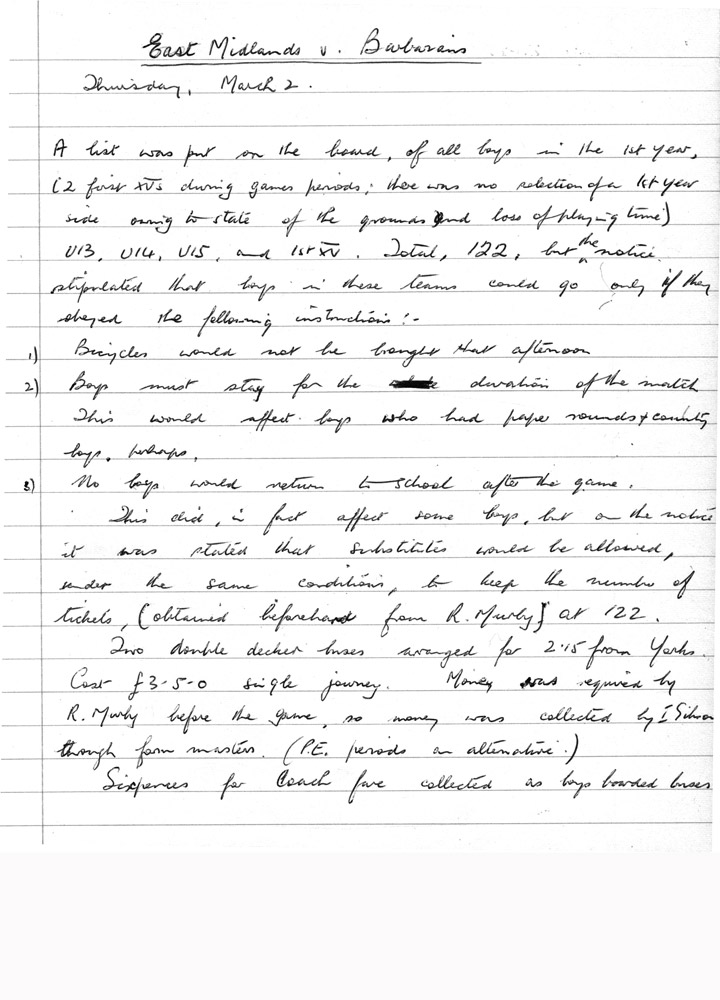 East Midlands v. Barbarians
Thursday, March 2.
A list was put on the board, of all boys in the 1st year,
(2 first XVs during games periods; there was no selection of a 1st year
side owing to state of the grounds and loss of playing time)
U13, U14, U15, and 1st XV. Total, 122, but the notice
stipulated that boys in these teams could go only if they
obeyed the following instructions:-
1) Bicycles would not be brought that afternoon
2) Boys must stay for the duration of the match
This would affect boys who had paper rounds & county
boys. perhaps.
3) No boys would return to school after the game.
This did, in fact affect some boys, but on the notice
it was stated that substitutes would be allowed,
under the same conditions, to keep the number of
tickets, (obtained beforehand from R. Murby) at 122.
Two double decker buses arranged for 2.15 from Yorks.
Cost £3-5-0 single journey. Money was required by
R. Murby before the game, so money was collected by I
though form masters. (P.E. periods an alternative.)
Sixpences for Coach fare collected as boys boarded buses